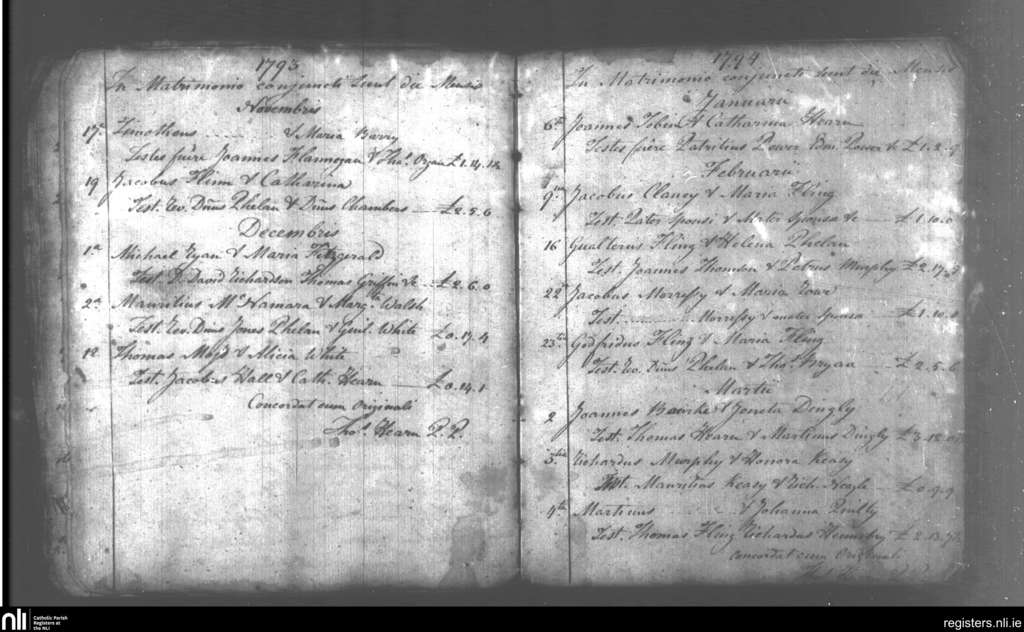 1793
In Matrimonio conjuncti sunt die Mensis
Novembris
17. Timotheus ...... & Maria Barry
Testes fuere Joannes Flannegan & Thos. Oryan £1.14.1½
19 Jacobus Flinn & Catharina
Test. Rev. Dnus Phelan & Dnus Chambers — £2.5.6
Decembris
1a Michael Ryan & Maria Fitzgerald
Test. D. David Richardson Thomas Griffin &c £2.6.0
2a Mauritius McNamara & Margta Walsh
Test. Rev. Dnus Jones Phelan & Guil. White £0.17.4
12 Thomas Moyd & Alicia White
Test. Jacobus Hall & Cath. Hearn — £0.14.1
Concordat cum Originali
Thos. Hearn P.P.
1794
In Matrimonio conjuncti sunt die Mensis
Januarii
6a Joannes Tobin & Catharina Hearn
Testes fuere Patritius Power Edm. Power &c £1.2.9
Februarii
9 Jacobus Clancy & Maria Fling
Test. Pater Sponsi & Mater Sponsa &c £1.10.0
16 Gualterus Fling & Helena Phelan
Test. Joannes & Petrus Murphy £2.17.
22 Jacobus Morrissy & Maria
Test. ...... Morrissy & mater Sponsa £1.10.
23 Godfridus Fling & Maria Fling
Test. Rev. Dnus Phelan & Thos. Bryan £2.5.6
Martii
2 Joannes & Dingly
Test. Thomas Hearn & Martinus Dingly £3.12.
3 Richardus Murphy & Honora Keasy
Test. Mauritius Keasy & Rich. Neagle £0.9.9
4 Martinus ...... & Johanna
Test. Thomas Fling Richardus £2.13.
Concordat cum Originali
nli
Catholic Parish
Registers at
the NLI
registers.nli.ie